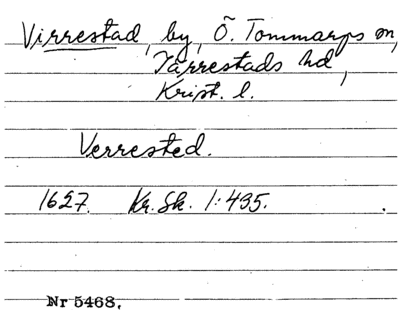 Virrestad, by, Ö. Tommarps sn,
Järrestads hd,
Krist. l.
Verrested.
1627. Kr. Sk. 1:435.
Nr 5468.